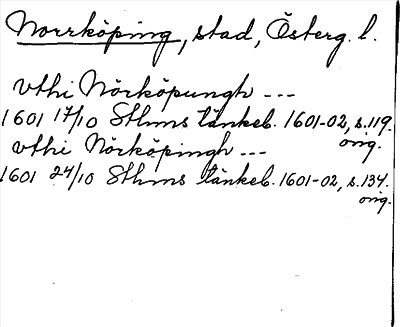 Norrköping, stad, Österg. l.
vthi Nörköpungh ---
1601 17/10 Sthms tänkeb. 1601-02, s. 119.
orig.
vthi Nörköpingh ---
1601 24/10 Sthms tänkeb. 1601-02, s. 134.
orig.